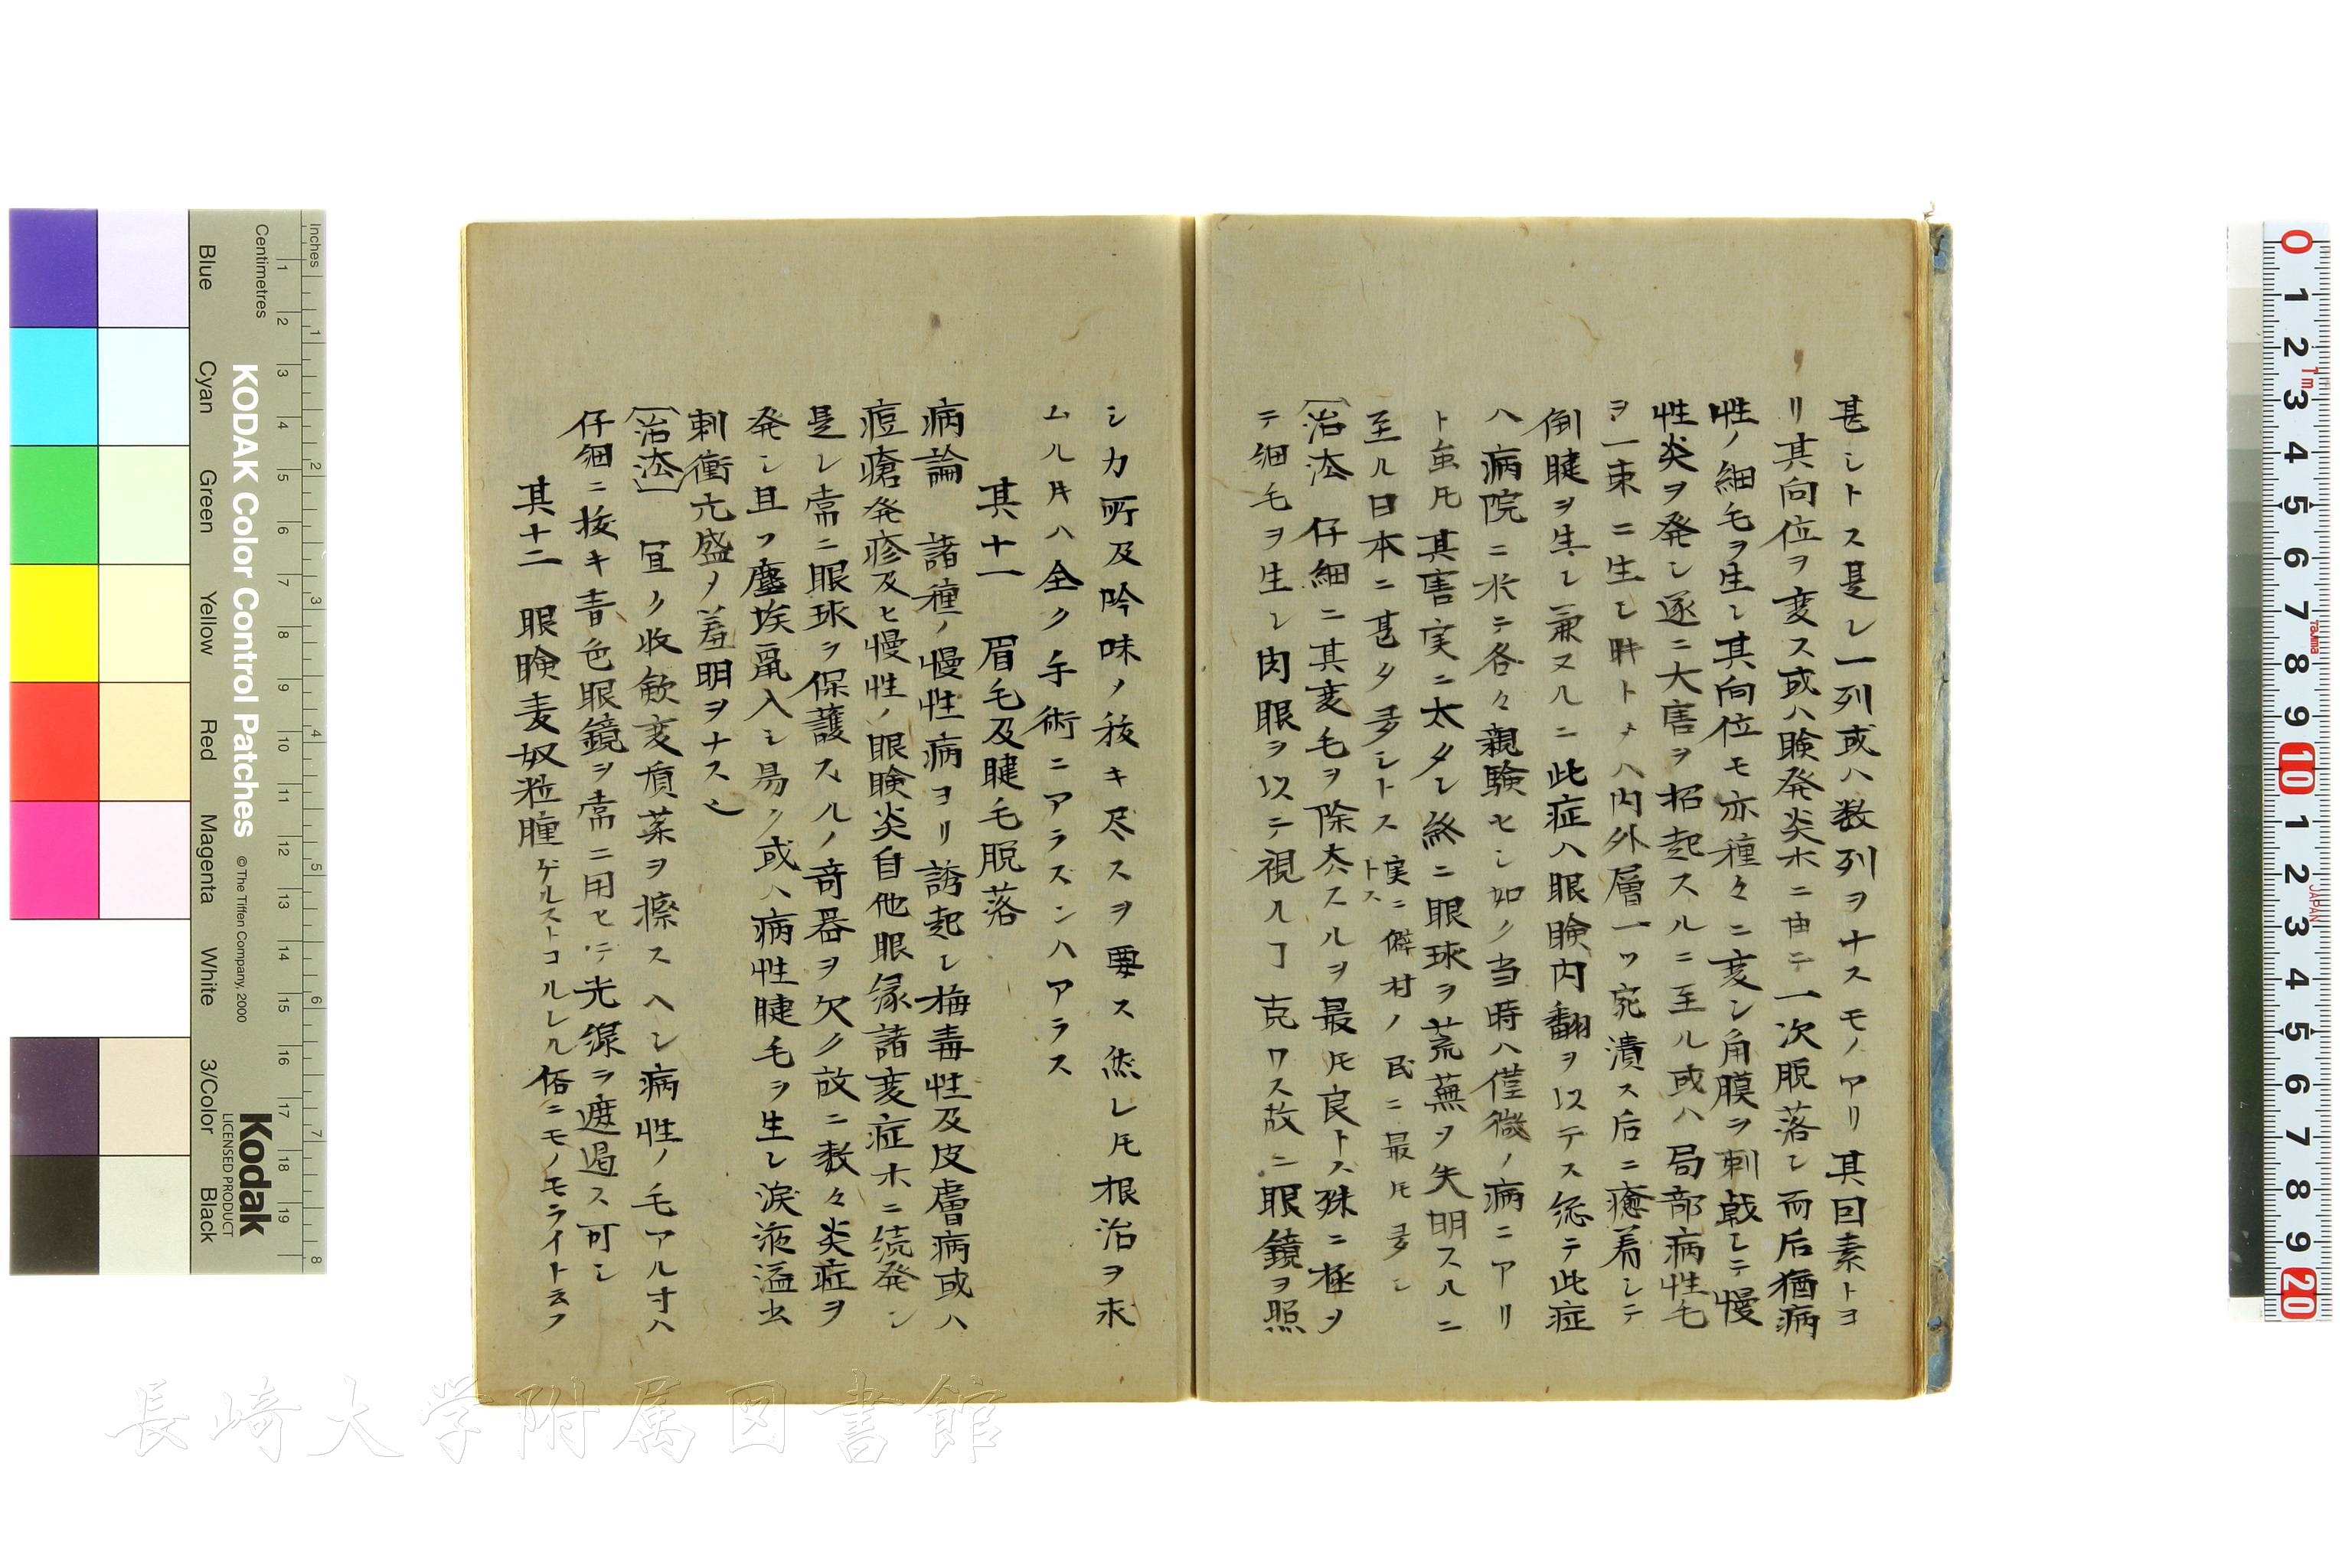 甚シトス是レ一列或ハ数列ヲナスモノアリ其因素トヨ
リ其向位ヲ変ス或ハ瞼発炎ホニ由テ一次脱落シ而后猶病
性ノ細毛ヲ生シ其向位モ亦種々ニ変シ角膜ヲ刺戟シテ慢
性炎ヲ発シ遂ニ大害ヲ招起スルニ至ル或ハ局部病性毛
ヲ一束ニ生シ
ハ内外層一ツ宛潰ス后ニ癒着シテ
倒睫ヲ生シ兼又ルニ此症ハ眼瞼内翻ヲ以テス総テ此症
ハ病院ニ来テ各々親験セシ如ク当時ハ僅微ノ病ニアリ
ト虽𪜈其害実ニ太タシ終ニ眼球ヲ荒蕪ヲ失明スルニ
至ル日本ニ甚タ多シトス
実ニ僻村ノ民ニ最𪜈多シ
トス
治法 仔細ニ其変毛ヲ除去スルヲ最𪜈良トス殊ニ極ヲ
テ細毛ヲ生シ肉眼ヲ以テ視ルヿ克ワス故ニ眼鏡ヲ照
シカ所及吟味ノ抜キ尽スヲ要ス然レ𪜈根治ヲ求
ムル片ハ全ク手術ニアラスンハアラス
其十一 眉毛及睫毛脱落
病論 諸種ノ慢性病ヨリ誘起シ梅毒性及皮膚病或ハ
痘瘡発疹及ヒ慢性ノ眼瞼炎自他眼縁諸変症ホニ続発シ
是レ常ニ眼球ヲ保護スルノ奇器ヲ欠ク故ニ数々炎症ヲ
発シ且ツ塵埃竄入シ易ク或ハ病性睫毛ヲ生シ涙液溢出
刺衝亢盛ノ羞明ヲナス也
治法 宜ク收斂変質薬ヲ擦スヘシ病性ノ毛アル寸ハ
仔細ニ抜キ青色眼鏡ヲ常ニ用ヒテ光線ヲ遮過ス可シ
其十二 眼瞼麦奴粒腫ゲルストコルレル俗ニモノモライト云フ
KODAK Color Control Patches
© The Tiffen Company, 2000
Kodak
LICENSED PRODUCT
Inches
Centimetres
1 2 3 4 5 6 7 8
1 2 3 4 5 6 7 8 9 10 11 12 13 14 15 16 17 18 19
Blue
Cyan
Green
Yellow
Red
Magenta
White
3/Color
Black
0 1 2 3 4 5 6 7 8 9 10 1 2 3 4 5 6 7 8 9 20
1m
Tajima
JAPAN
長崎大学附属図書館